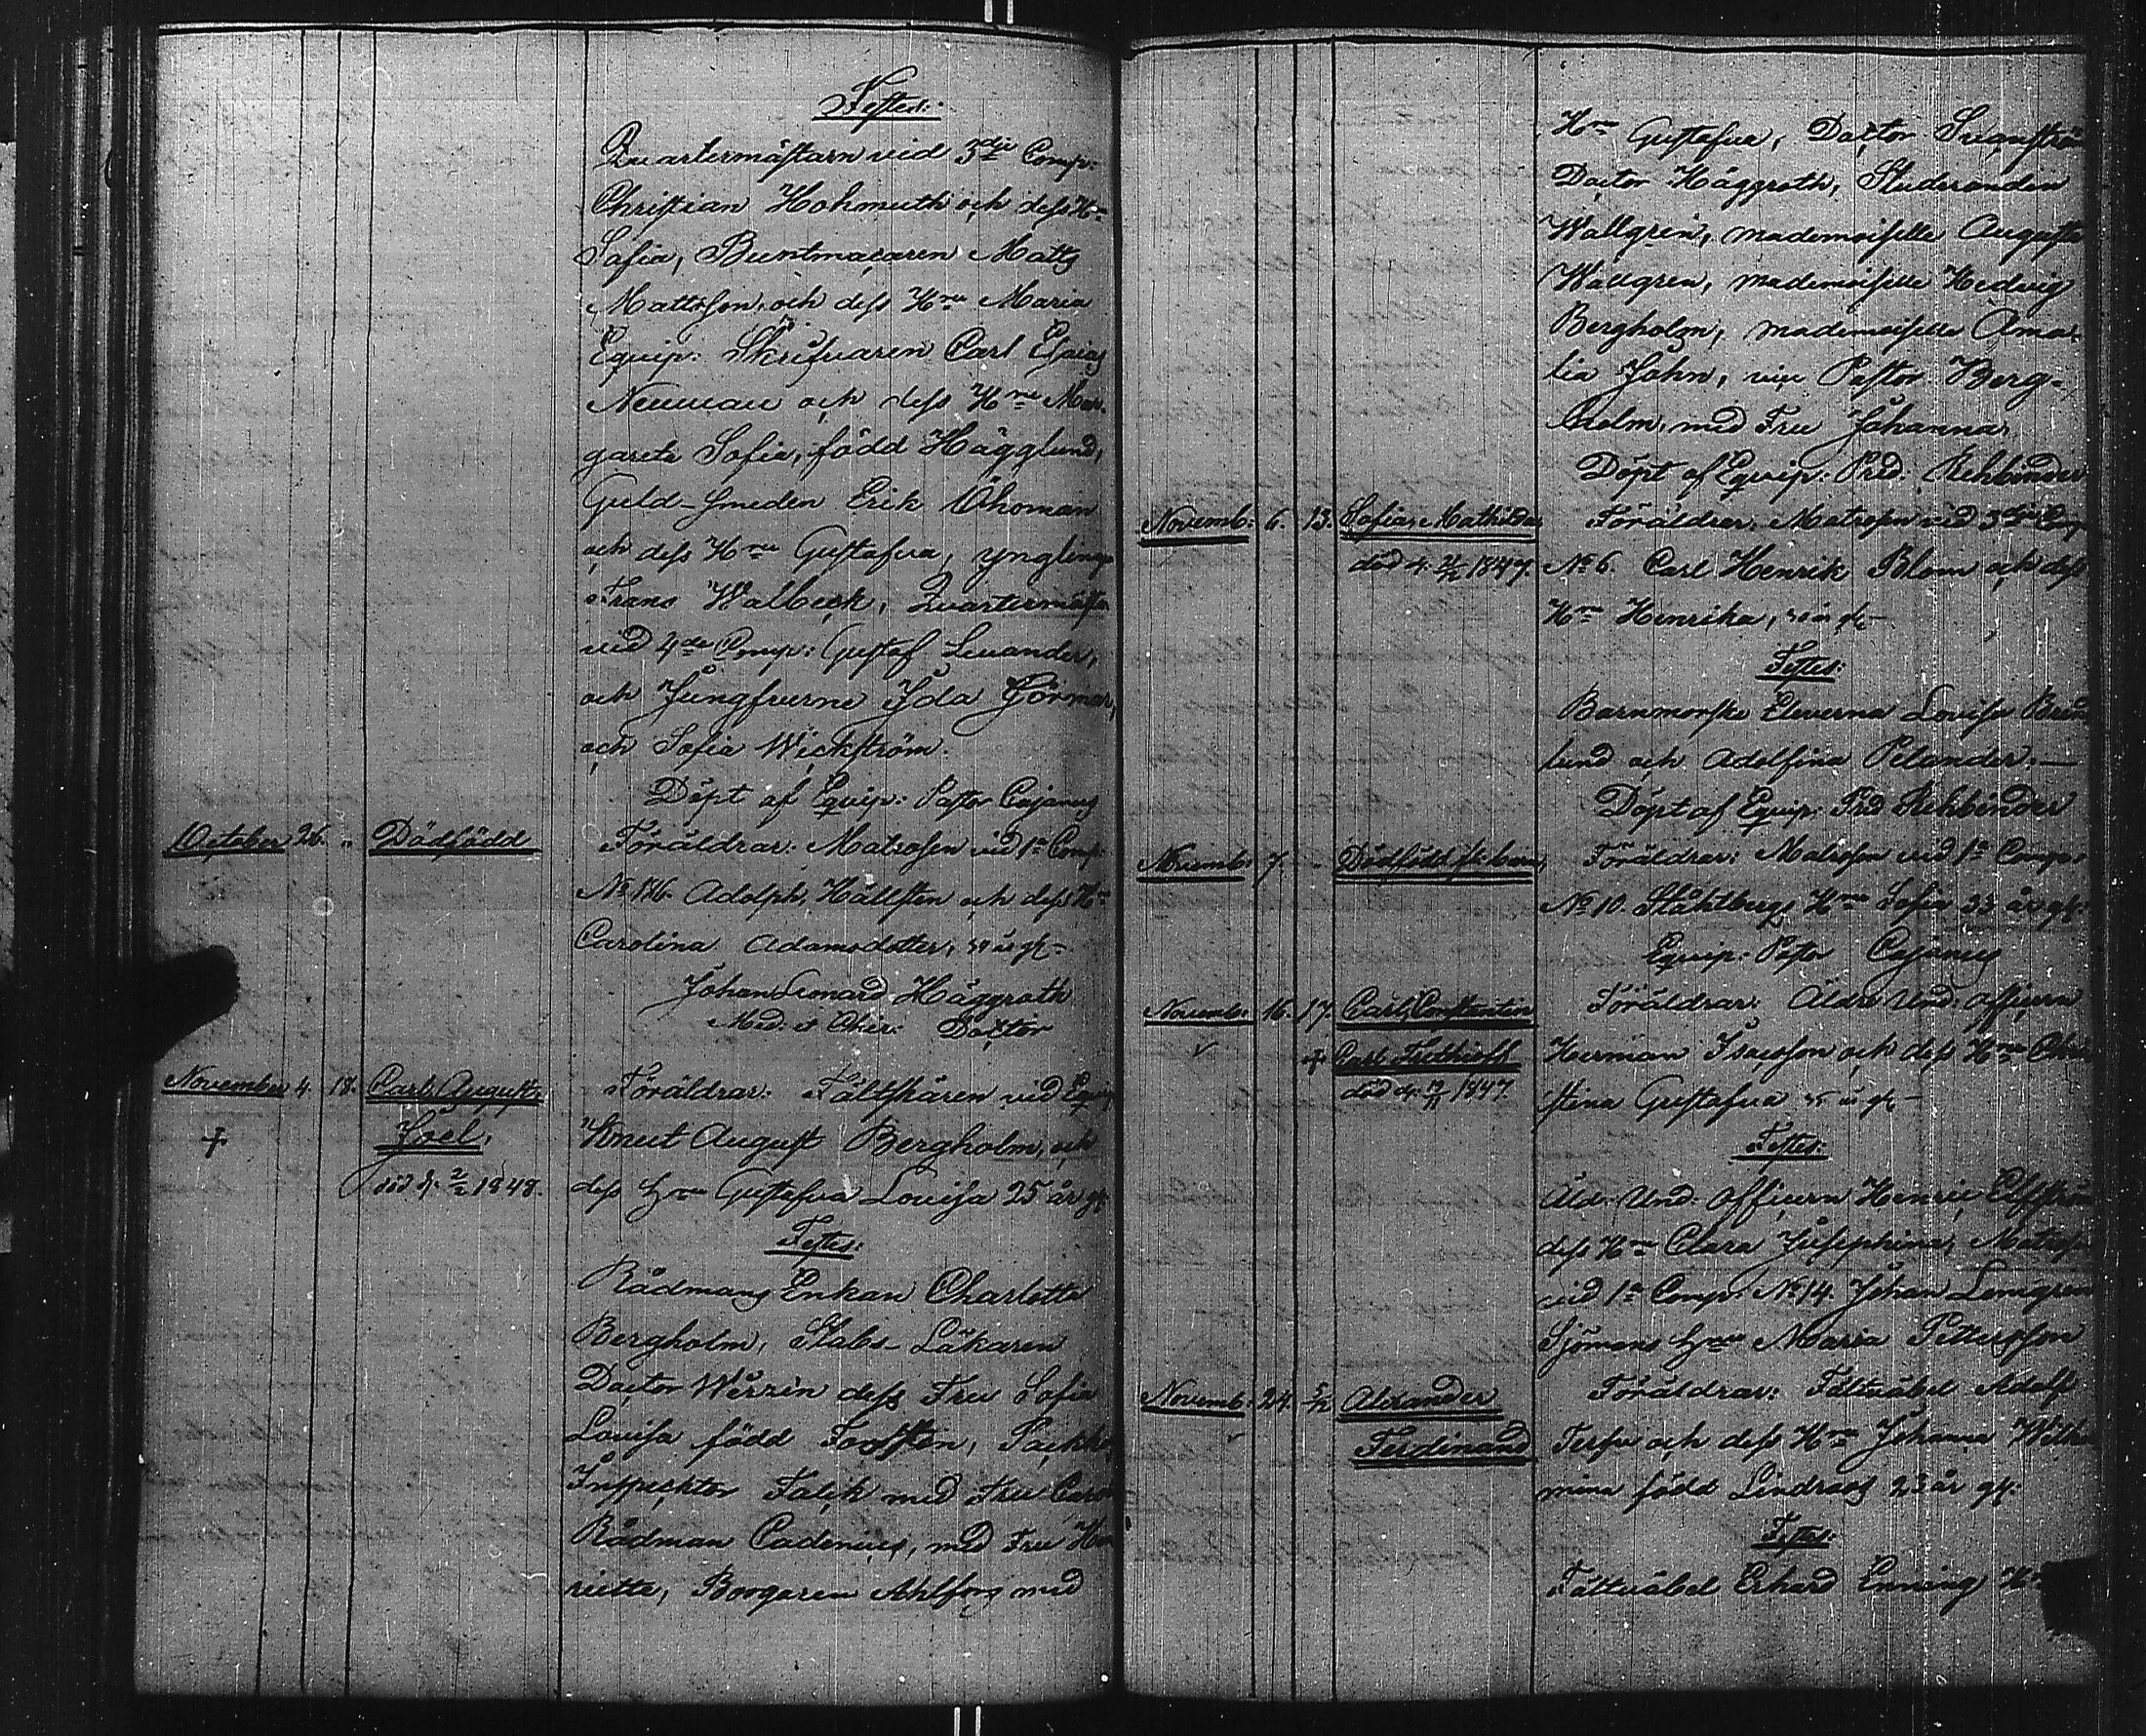 Testes:
Quartermästarn vid 3dje Comp:
Christian Hohmuth och dess H:
Sofia, Buntmacaren Matts
Mattsson, och dess Hru Maria
Equip: Skrifvaren Carl Esaias
Neuman och dess Hru Mar-
gareta Sofia, född Hägglund,
Guld-smeden Erik Öhoman
och dess Hru Gustafva, ynglinge
Frans Walbeck, Quartermästa
vid 4de Comp: Gustaf Levander,
och Jungfrurne Ida Görman,
och Sofia Wickström.
Döpt af Equip: Pastor Cajanus
October 26. " Dödfödd Föräldrar: Matrosen vid 1a Comp:
No 116. Adolph Hällsten och dess H:
Carolina Adamsdotter, år gl-
Johan Leonard Häggroth
Med: et Chir: Doctor
November 4. 18. Carl August Föräldrar: Fältskären vid Equip
† Joel. Knut August Bergholm, och
död d. 2/2 1848. dess Hru Gustafva Lovisa 25 år gl
Testes:
Rådmans Enkan Charlotta
Bergholm, Stabs-Läkaren
Doctor Werzin dess Fru Sofia
Lovisa född Forsten, Packh
Inspecktor Falck med Fru Caro
Rådman Cadenius, med Fru Hen
riette, Borgaren Ahlfors med
Hru Gustafva, Doctor Svanströ
Doctor Häggroth, Studeranden
Wallgren, mademoiselle Augusta
Wallgren, mademoiselle Hedvig
Bergholm, mademoiselle Ama-
lia John, vice Pastor Berg-
holm, med Fru Johanna.
Döpt af Equip: Pred: Rehbinder
Novemb: 6. 13. Sofia Mathilda Föräldrar: Matrosen vid 3dje Comp
död d. 1847. No 6. Carl Henrik Blom och dess
Hru Henrika, år gl-
Testes:
Barnmorske Eleverna Lovisa
lund och Adolfina Pelander.—
Döpt af Equip: Pred Rehbinder
Novemb: 7. - Dödfödd Föräldrar: Matrosen vid 1a Comp:
No 10. Ståhlbergs Hru Sofia 33 år gl:
Equip: Past Cajanus
Novemb: 16. 17. Carl Constantin Föräldrar: Äldre Und: officern
† Carl Frithioff Herman Isacsson och dess Hru Chri
död d. 19/11 1847. stina Gustafva år gl-
Testes:
Äld: Und: officern Henric
dess Hru Clara Josephina, Matros
vid 1a Comp: No 14. Johan Lemgren
Sjömans Hru Maria Pettersson
Novemb: 24. Alexander Föräldrar: Fältväbel Adolf
Ferdinand och dess Hru Johanna Wilhel
mina född Lindroos 23 år gl:
Testes:
Fältväbel Erhard Enning H